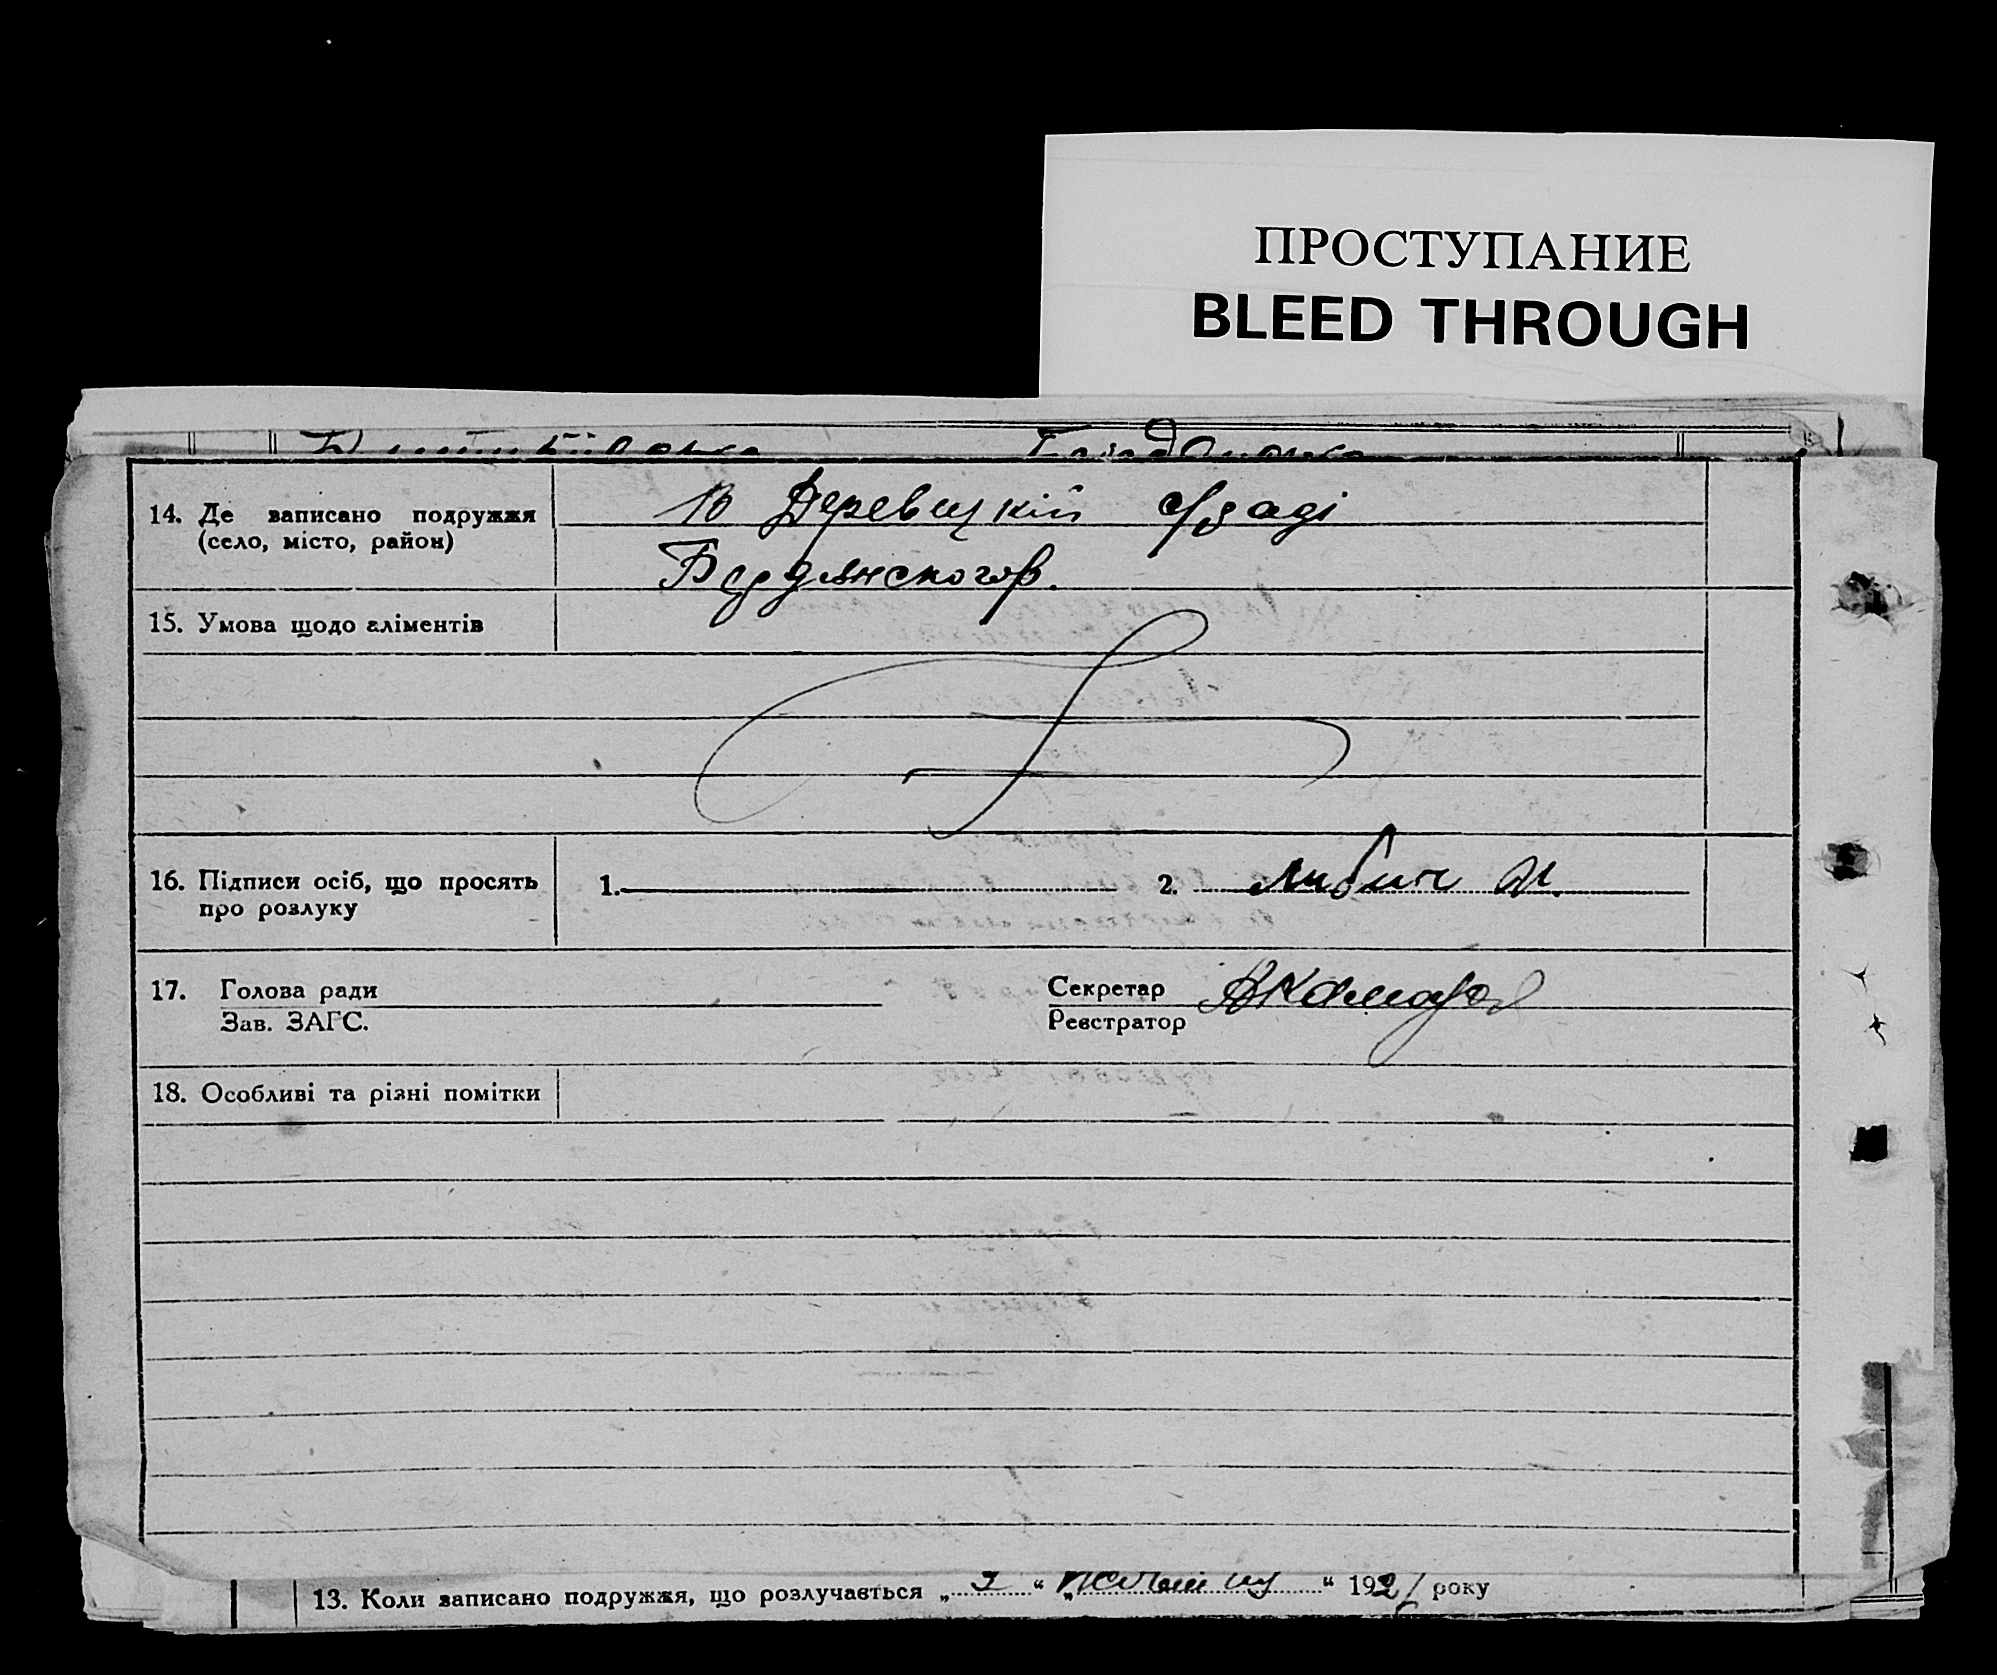 ПРОСТУПАНИЕ
BLEED THROUGH
14. Де записано подружжя
(село, місто, район)
В Деревецкій с/раді
Бердянского р.
15. Умова щодо аліментів
16. Підписи осіб, що просять
про розлуку
1. 2. Любич М.
17. Голова ради
Зав. ЗАГС.
Секретар
Реєстратор
18. Особливі та різні помітки
13. Коли записано подружжя, що розлучається „ “ „ “ 192 року